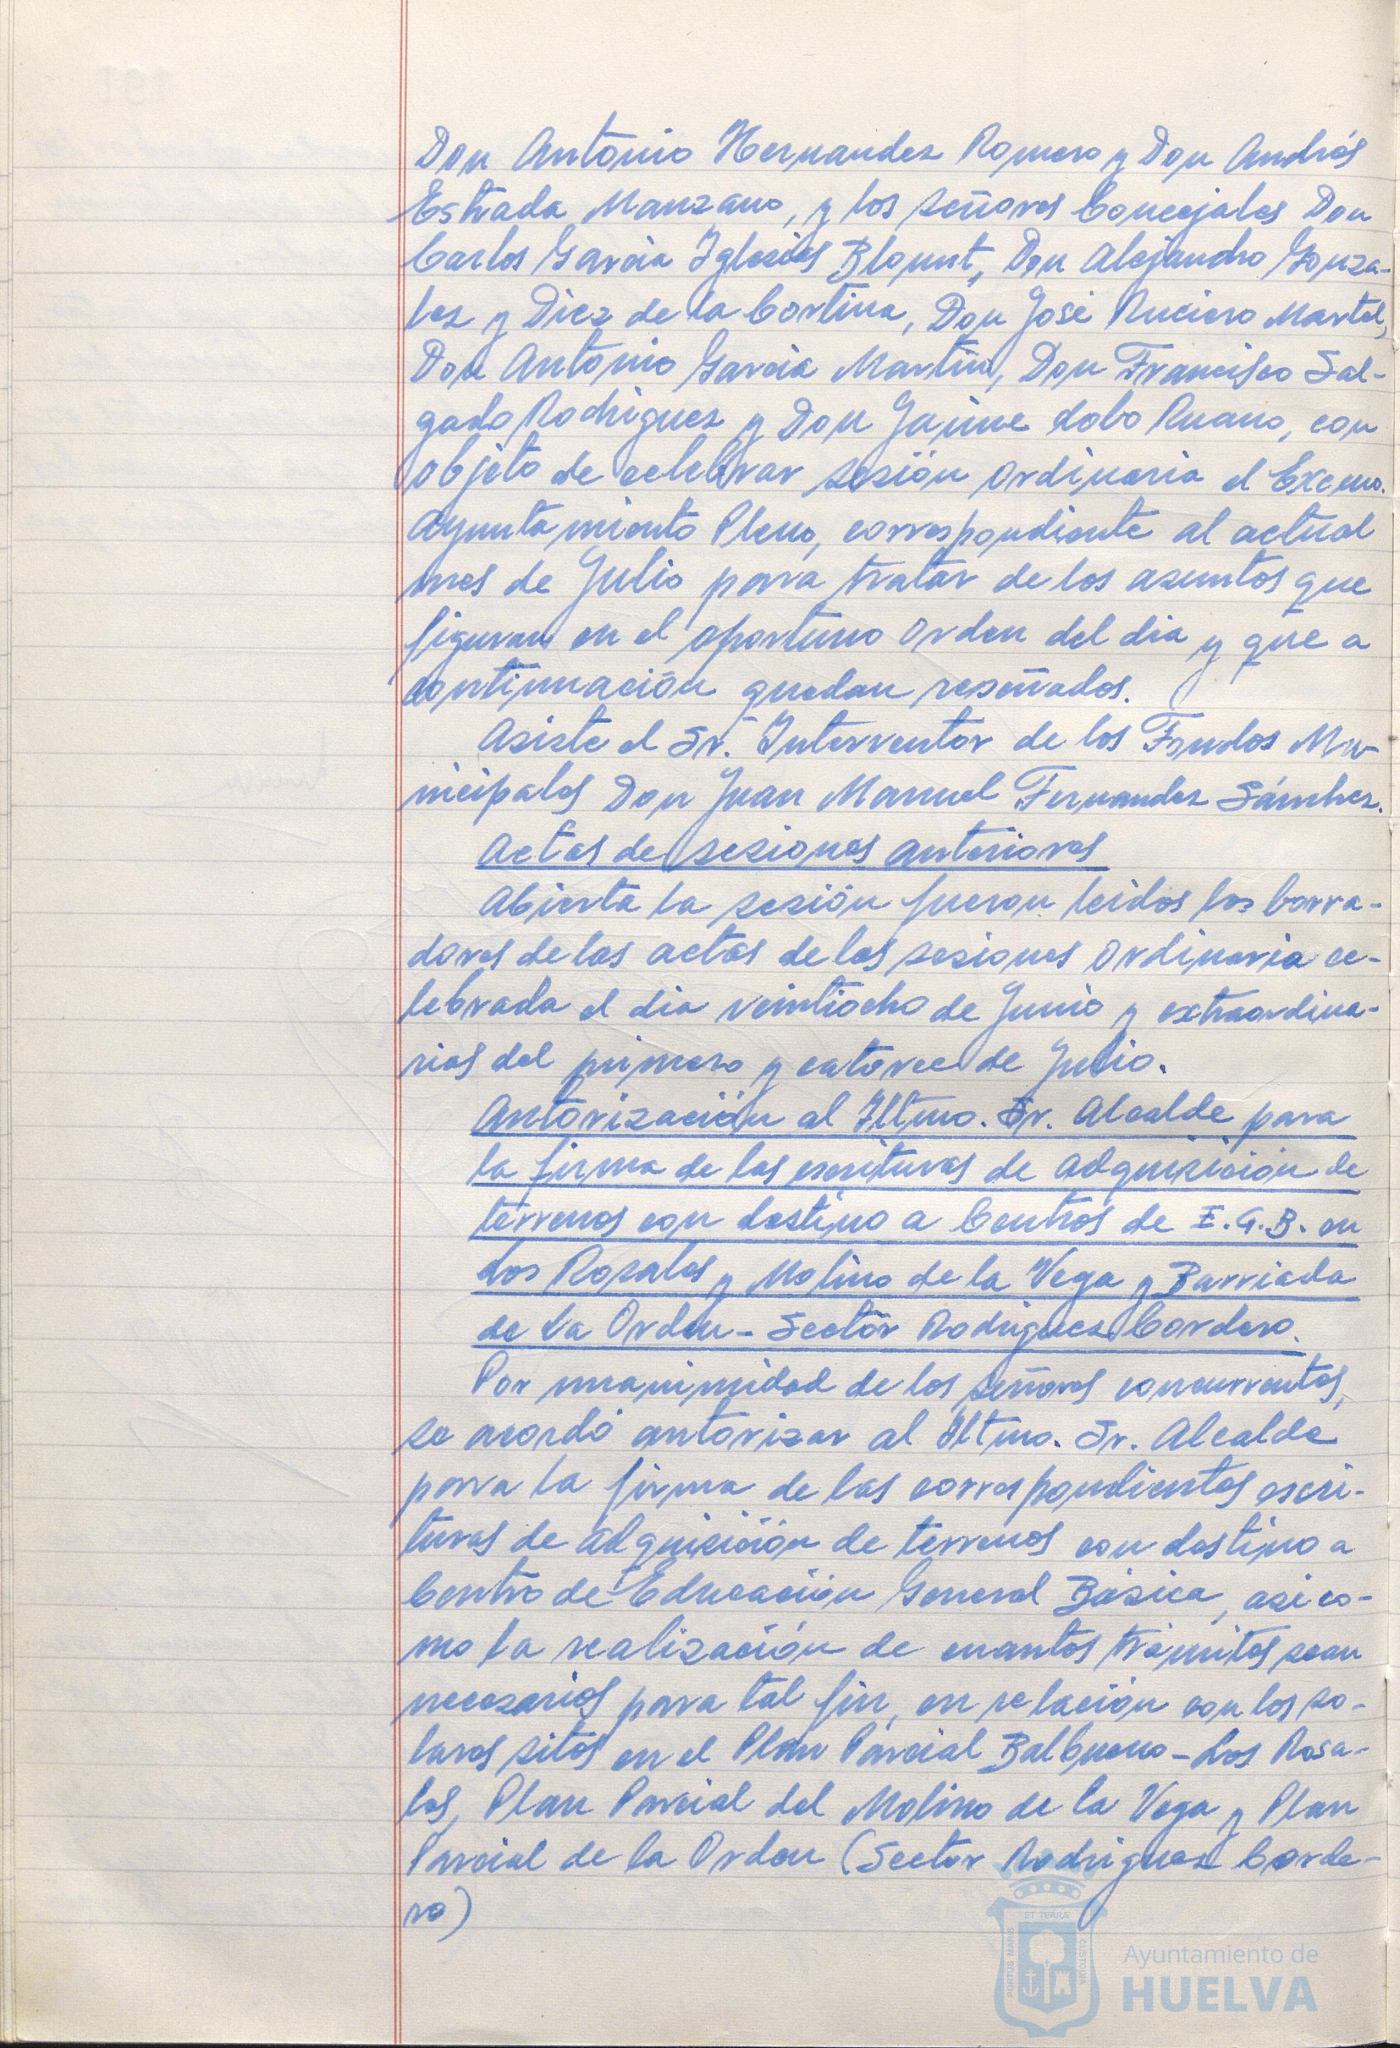 Don Antonio Hernandez Romero y Don Andrés
Estrada Manzano, y los señores Concejales Don
Carlos Garcia Iglesias Blount, Don Alejandro Gonza-
lez y Diez de la Cortina, Don José Ruciero Martel,
Don Antonio Garcia Martin, Don Francisco Sal-
gado Rodriguez y Don Jaime Lobo Ruano, con
objeto de celebrar sesión ordinaria el Excmo.
Ayuntamiento Pleno, correspondiente al actual
mes de Julio para tratar de los asuntos que
figuran en el oportuno orden del dia y que a
continuación quedan reseñados.
Asiste el Sr. Interventor de los Fondos Mu-
nicipales Don Juan Manuel Fernandez Sánchez.
Actas de sesiones anteriores
Abierta la sesión fueron leidos los borra-
dores de las actas de las sesiones ordinaria ce-
lebrada el dia veintiocho de Junio y extraordina-
rias del primero y catorce de Julio.
Autorización al Iltmo. Sr. Alcalde para
la firma de las escrituras de adquisición de
terrenos con destino a Centros de E.G.B. en
Los Rosales y Molino de la Vega y Barriada
de la Orden - Sector Rodriguez Cordero.
Por unanimidad de los señores concurrentes,
se acordó autorizar al Iltmo. Sr. Alcalde
para la firma de las correspondientes escri-
turas de adquisición de terrenos con destino a
Centro de Educación General Básica, asi co-
mo la realización de cuantos trámites sean
necesarios para tal fin, en relación con los so-
lares sitos en el Plan Parcial Balbueno - Los Rosa-
les, Plan Parcial del Molino de la Vega y Plan
Parcial de la Orden (Sector Rodriguez Corde-
ro)
PORTUS MARIS ET TERRAE CUSTODIA
Ayuntamiento de
HUELVA